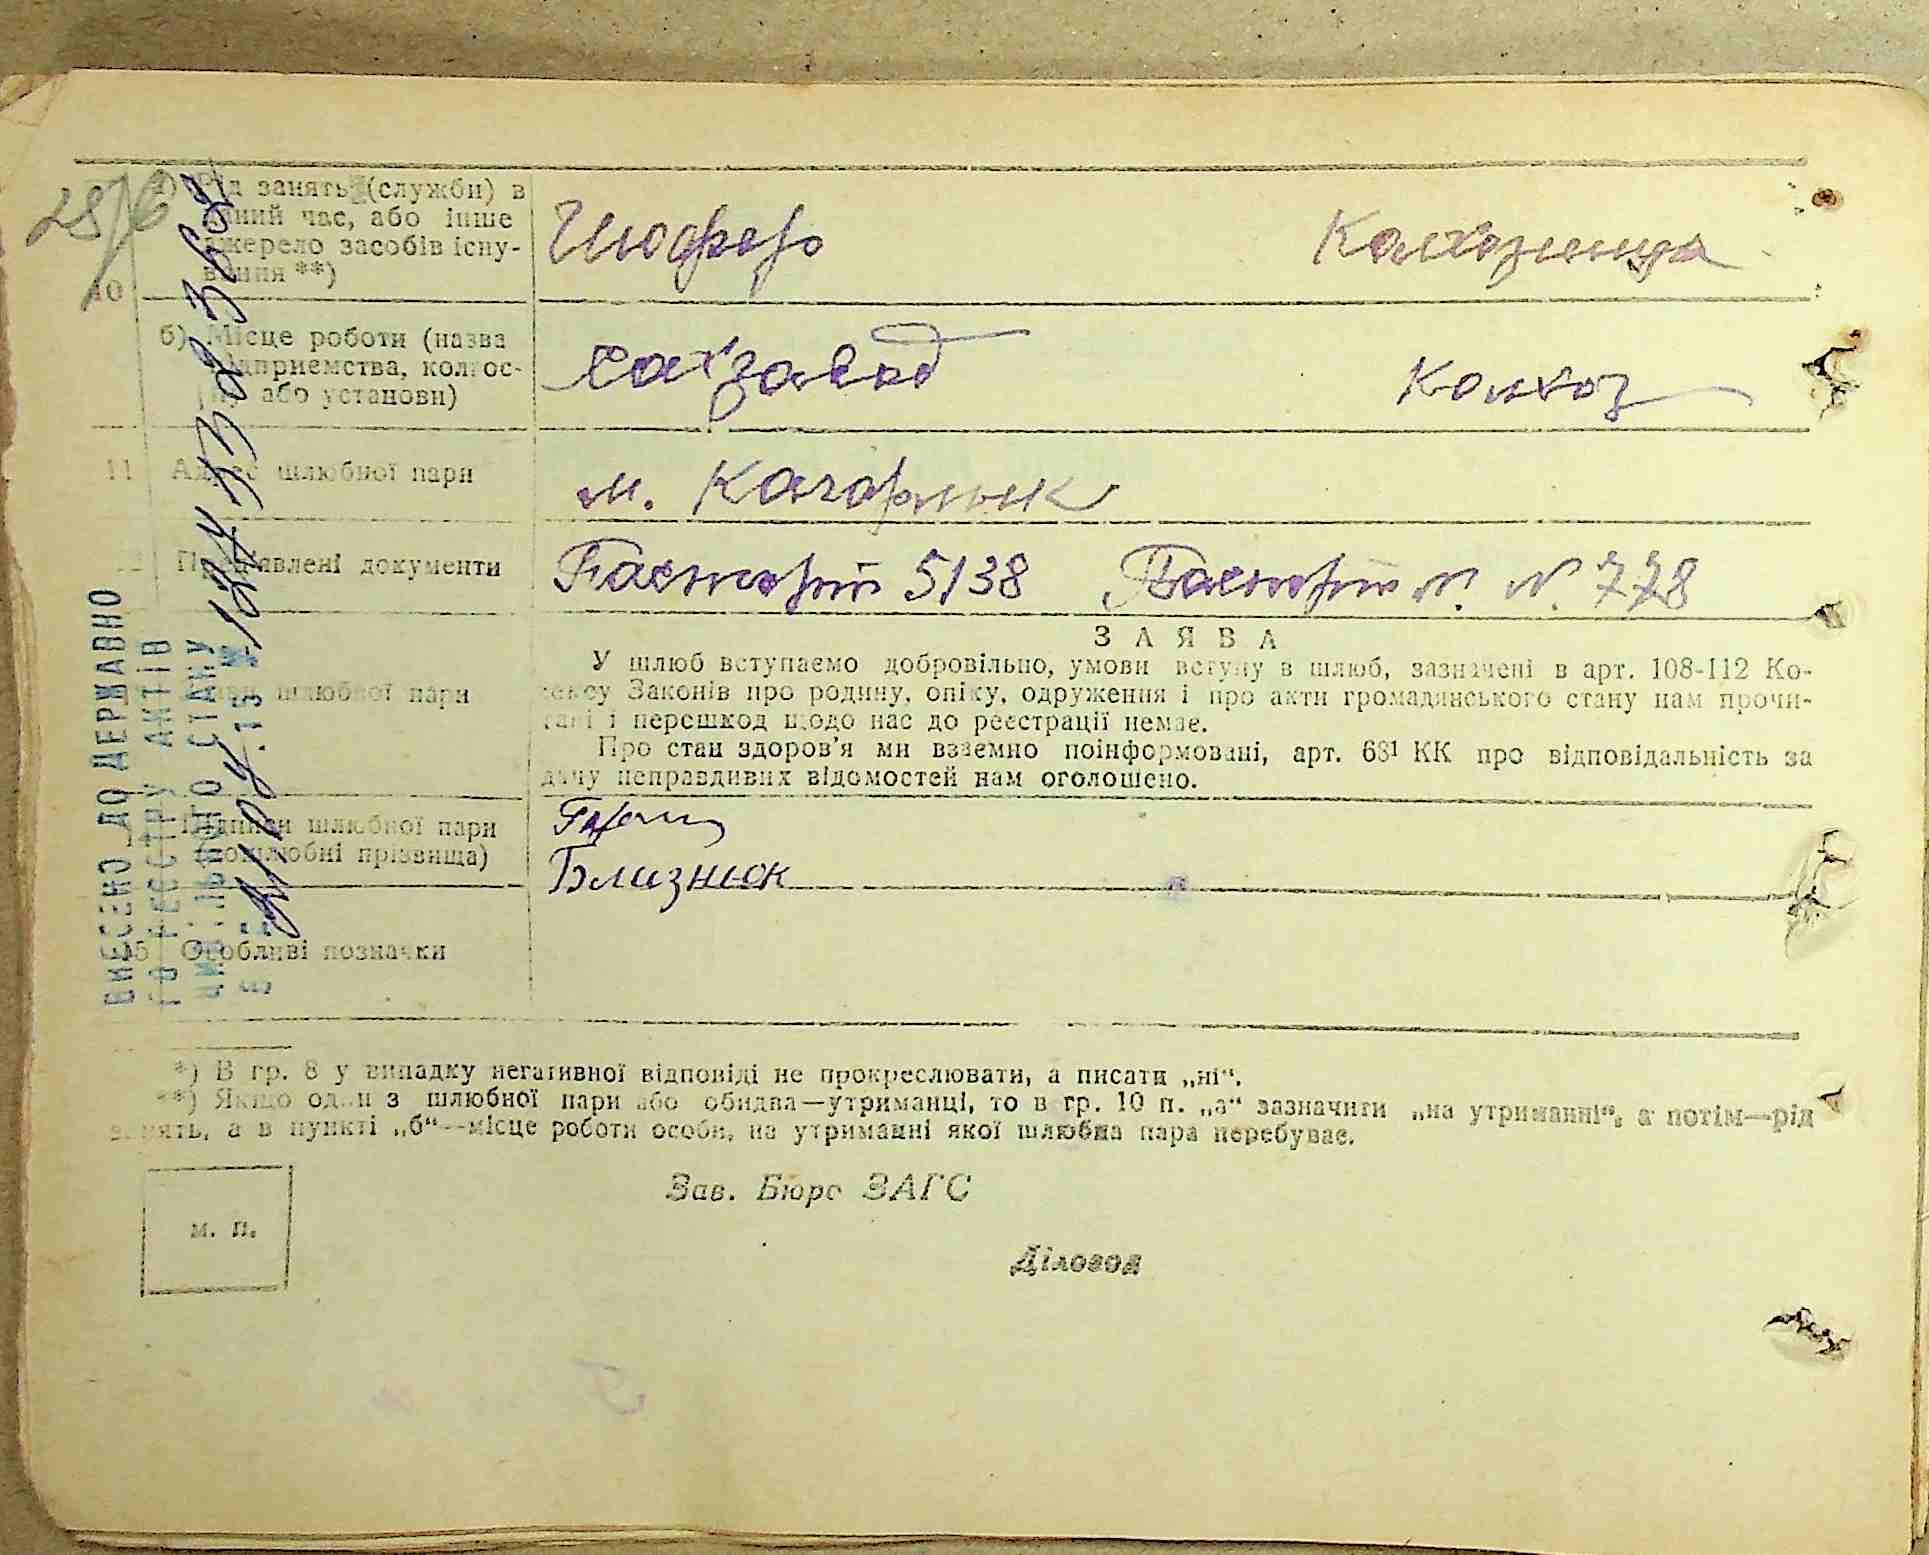 28/6
а) Рід занять (служби) в
даний час, або інше
джерело засобів існу-
вання **)
Шофер Колхозница
10
б) Місце роботи (назва
підприємства, колгос-
пу або установи)
Сахзавод Колхоз
11 Адрес шлюбної пари
м. Кагарлык
12 Пред'явлені документи
Паспорт 5138 Паспорт № 778
ЗАЯВА
шлюбної пари
У шлюб вступаємо добровільно, умови вступу в шлюб, зазначені в арт. 108-112 Ко-
дексу Законів про родину, опіку, одруження і про акти громадянського стану нам прочи-
тані і перешкод щодо нас до реєстрації немає.
Про стан здоров'я ми взаємно поінформовані, арт. 68¹ КК про відповідальність за
дачу неправдивих відомостей нам оголошено.
Підписи шлюбної пари
(дошлюбні прізвища)
Близнюк
15 Особливі позначки
ВНЕСЕНО ДО ДЕРЖАВНО
ГО РЕЄСТРУ АКТІВ
ЦИВІЛЬНОГО СТАНУ
*) В гр. 8 у випадку негативної відповіді не прокреслювати, а писати „ні“.
**) Якщо один з шлюбної пари або обидва—утриманці, то в гр. 10 п. „а“ зазначити „на утриманні“, а потім—рід
занять, а в пункті „б“—місце роботи особи, на утриманні якої шлюбна пара перебуває.
Зав. Бюро ЗАГС
м. п.
Діловод